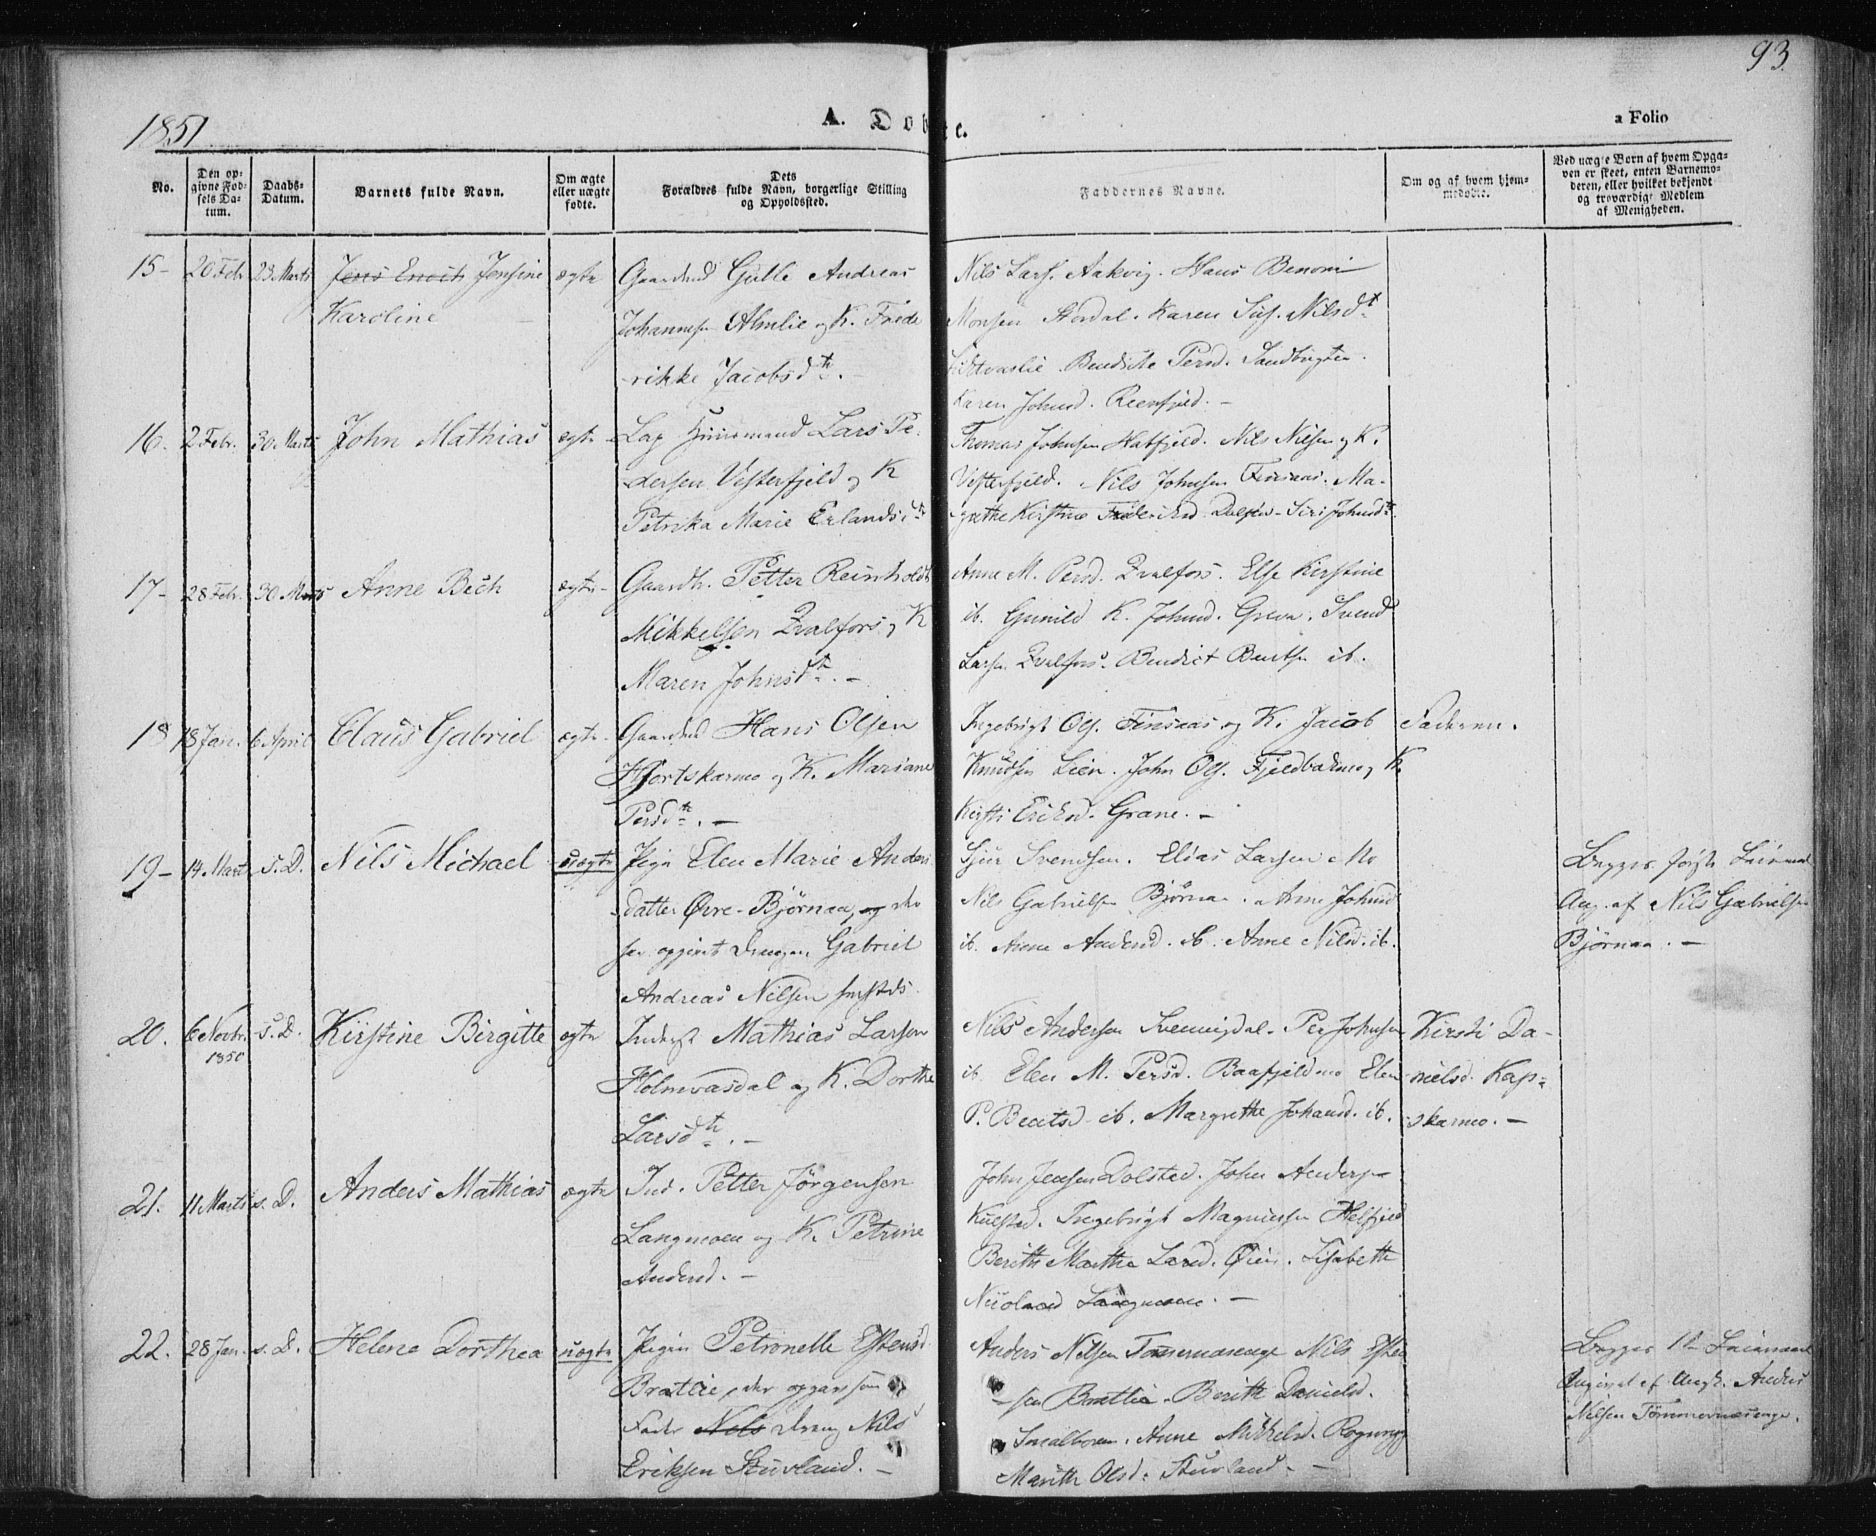 93.
1851
A. Døbte.
a Folio
No.
Den op-
givne Fød-
sels Da-
tum.
Daabs-
Datum.
Barnets fulde Navn.
Om ægte
eller uægte
fødte.
Dets
Forældres fulde Navn, borgerlige Stilling
og Opholdssted.
Faddernes Navne.
Om og af hvem hjem-
medøbte.
Ved uægte Børn af hvem Opga-
ven er skeet, enten Barnemo-
deren, eller hvilket bekjendt
og troværdigt Medlem
af Menigheden.
15- 20 Febr 23 Marts Jens Enoch Jensine ægte
Karoline
Gaardmd Gulle Andreas
Johannesen Almlie og K. Frede
-rikke Jacobsdtr. -
Nils Lars. Aakvig. Hans Benoni
Monsen Stordal. Karen Nilsdt
Benedicte Persd. Sandbugten
Karen Johnsd. Reenfjeld. -
16. 2 Febr. 30 Marts John Mathias ægte
Lap Huusmand Lars Pe-
dersen Vesterfjeld og K
Petrika Marie Erlandsdtr
Thomas Johnsen Hatfjeld. Nils Nilsen og K.
Vesterfjeld. Nils Johnsen Finsaas. Ma-
grethe Kirstine Frederiksd. Siri Johnsdtr.
17- 28 Febr. 30 Marts Anne Bech ægte-
Gaardb. Petter Reinholdt
Mikkelsen Kvalfors og K
Maren Johnsdtr. -
Anne M. Persd. Kvalfors. Else Kirstine
ib. Gunild K. Johnsd. Svend
Larsen Kvalfors. Benedict Bentsn ib.
18 18 Jan. 6 April Claus Gabriel ægte-
Gaardmd Hans Olsen
Hjortskarmo og K. Mariane
Persdtr. -
Ingebrigt Ols. Finsaas og K. Jacob
Knudsen Lien. John Ols. Fjeldbakmo og K.
Kirsti Eriksd. Grane. -
Faderen.
19- 14 Marts s. D. Nils Michael uægte
Pige Elen Marie Anders
datter Øvre-Bjørnaa, og der
Gabriel
Andreas Nilsen
Sjur Svendsen. Elias Larsen Mo
Nils Gabrielsen Bjørnaa. Anne Johnsd
ib. Anne Andersd. ib. Anne Nilsd. ib.
Begges første Leiermaal
Ang. af Nils Gabrielsen
Bjørnaa. -
20. 6 Novbr. 1850 s. D. Kirstine Birgitte ægte
Inderst Mathias Larsen
Holmvasdal og K. Dorthe
Larsdtr. -
Nils Andersen Svenningdal. Per Johnsen
ib. Elen M. Persd. Baafjeldmo Elen
P. Beatsd ib. Margrethe Johansd. ib.
Kirsti Da-
nielsd. Kap-
skarmo. -
21. 11 Marts s. D. Anders Mathias ægte
Ind. Petter Jørgensen
Langmoen og K. Petrine
Andersd. -
John Jensen Dolstad. John Anders-
Kulstad. Ingebrigt Magnussen Helfjeld
Berith Martha Larsd. Øien. Lisabeth
Nicolaisd Langmoen. -
22. 28 Jan. s. D. Helene Dorthea uægte
Pigen Petronelle Estensd.
Bratlie, der opgav som
Fader Nels Dreng Nils
Eriksen Stuvland. -
Anders Nilsen Tømmernæsenge Nils Esten
-sen Brattlie. Berith Danielsd.
Smalboren. Anne Mikkelsd.
Marith Olsd. Stuvland. -
Begges 1te Leiermaal
Angivet af Ungk. Anders
Nilsen Tømmernæsenge.